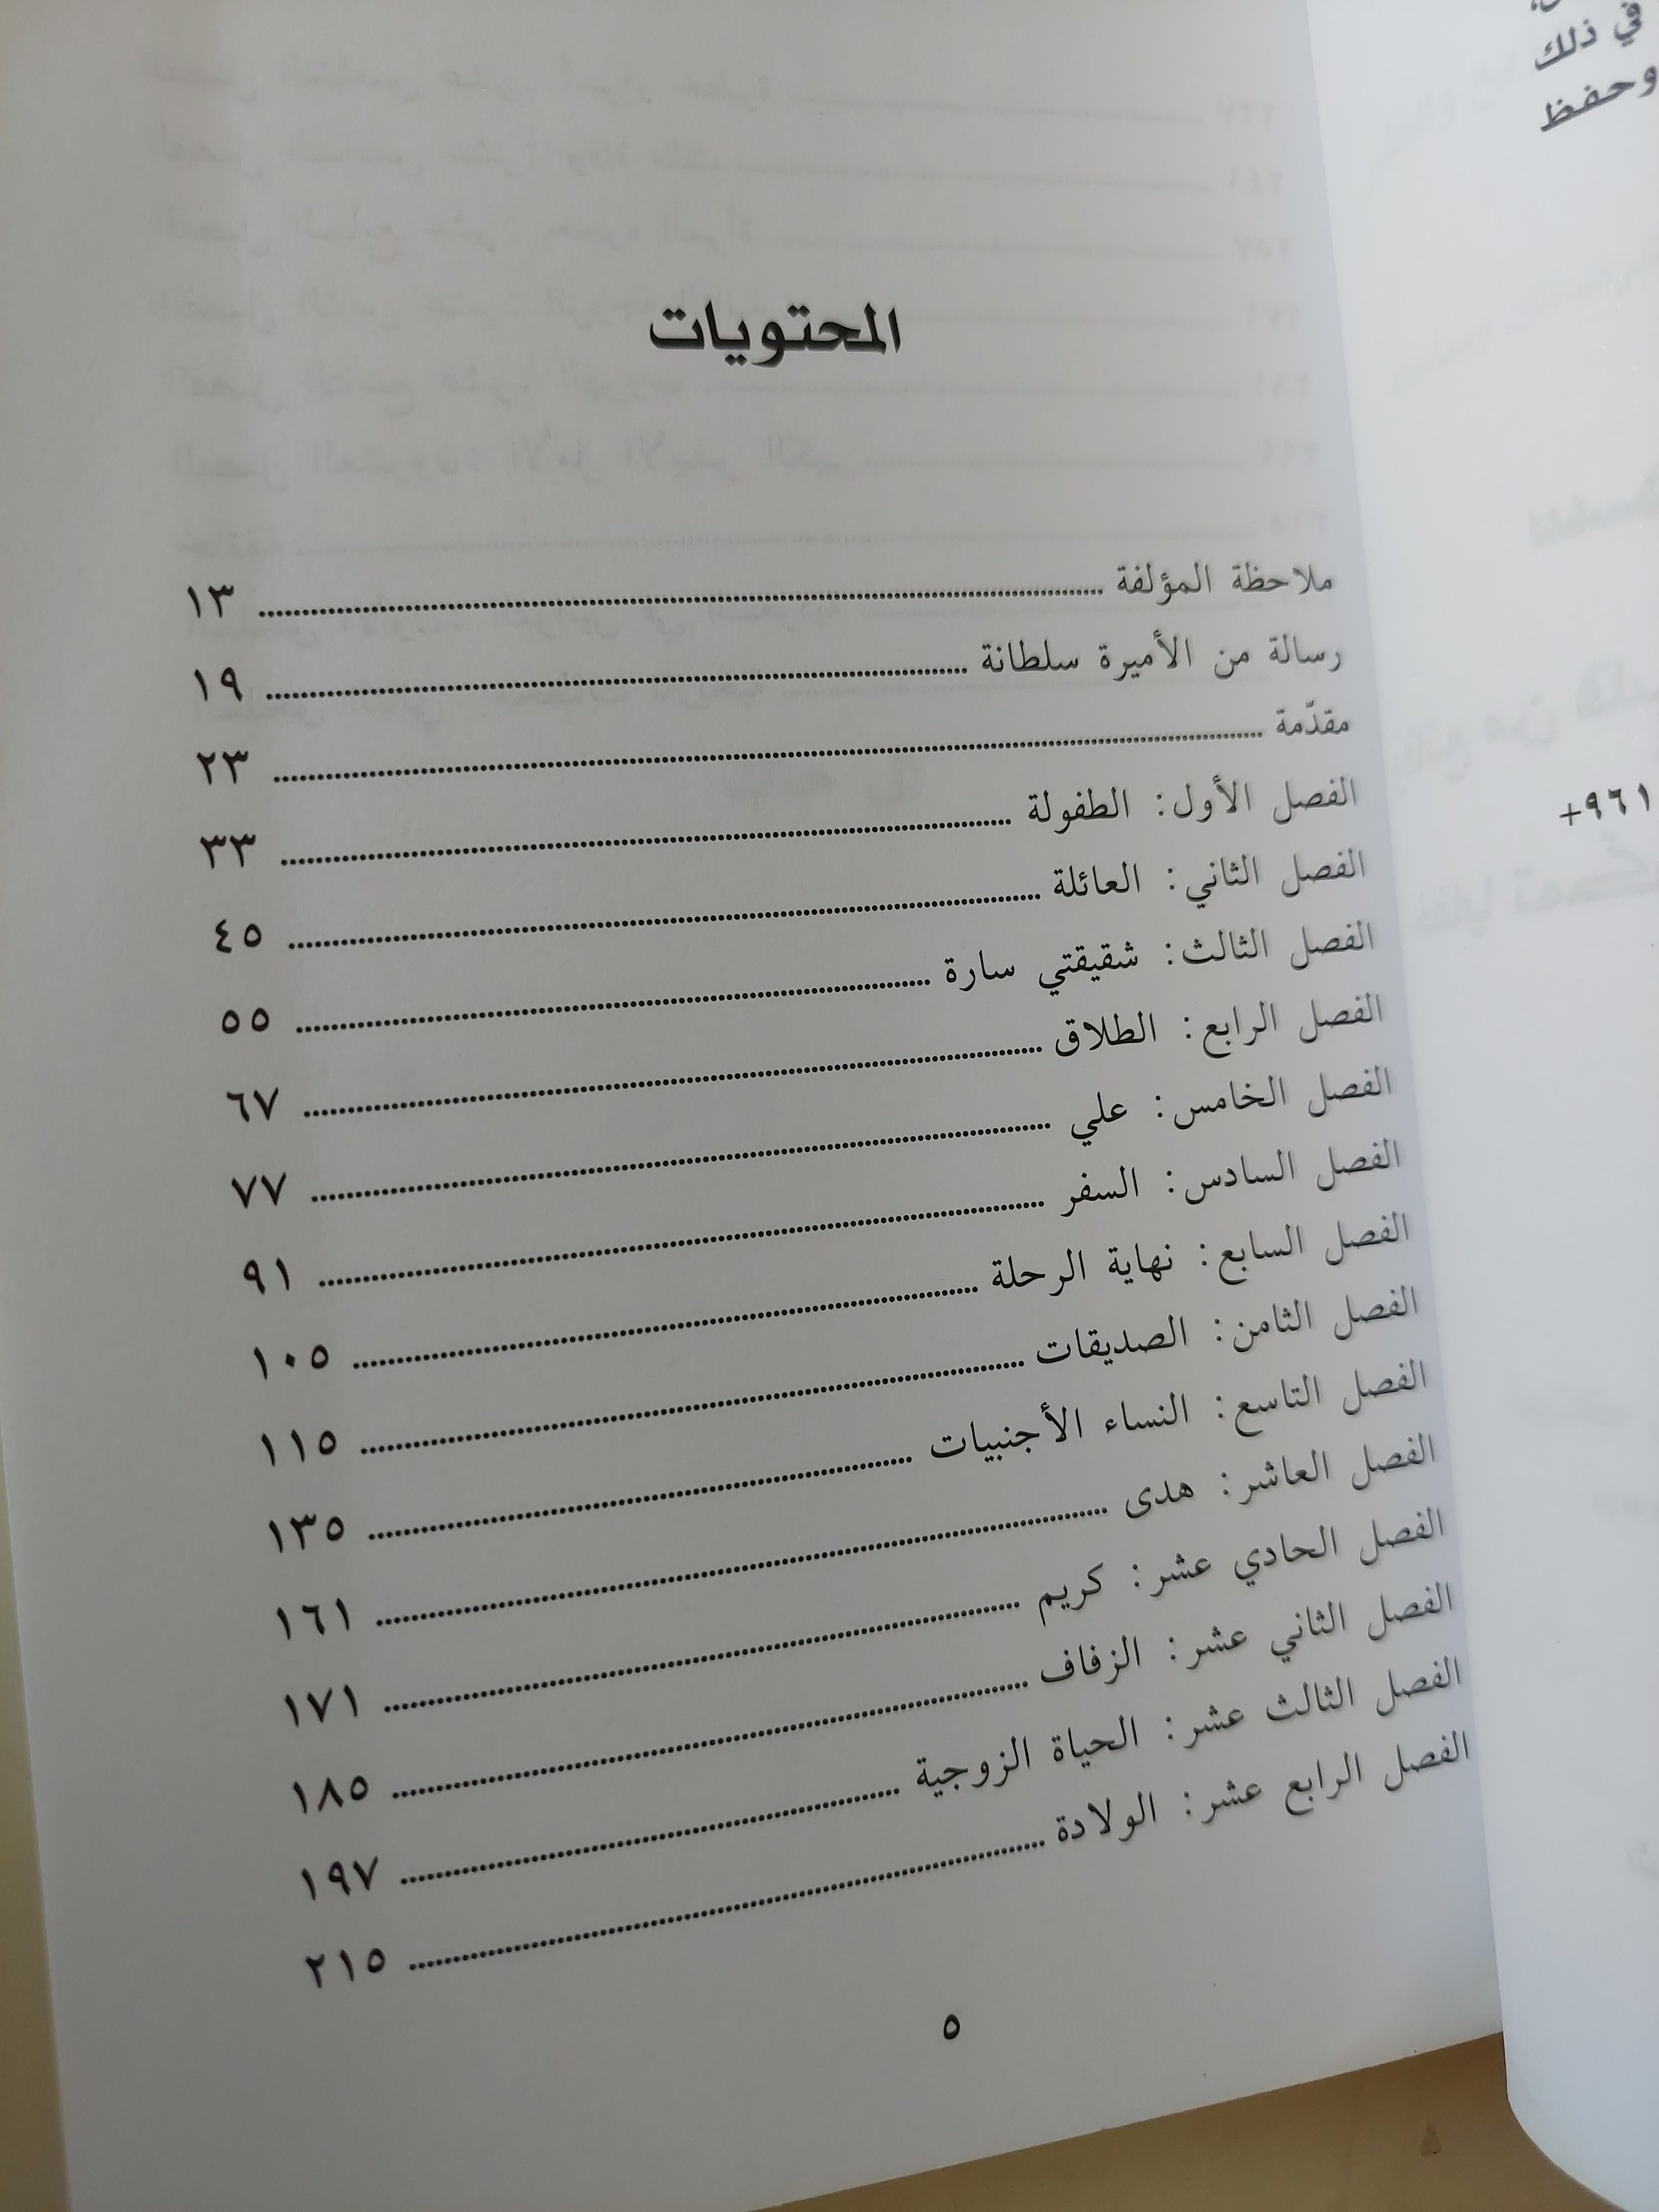 في ذلك
وحفظ
+٩٦١
المحتويات
ملاحظة المؤلفة ........ ١٣
رسالة من الأميرة سلطانة ........ ١٩
مقدّمة ........ ٢٣
الفصل الأول: الطفولة ........ ٣٣
الفصل الثاني: العائلة ........ ٤٥
الفصل الثالث: شقيقتي سارة ........ ٥٥
الفصل الرابع: الطلاق ........ ٦٧
الفصل الخامس: علي ........ ٧٧
الفصل السادس: السفر ........ ٩١
الفصل السابع: نهاية الرحلة ........ ١٠٥
الفصل الثامن: الصديقات ........ ١١٥
الفصل التاسع: النساء الأجنبيات ........ ١٣٥
الفصل العاشر: هدى ........ ١٦١
الفصل الحادي عشر: كريم ........ ١٧١
الفصل الثاني عشر: الزفاف ........ ١٨٥
الفصل الثالث عشر: الحياة الزوجية ........ ١٩٧
الفصل الرابع عشر: الولادة ........ ٢١٥
٥